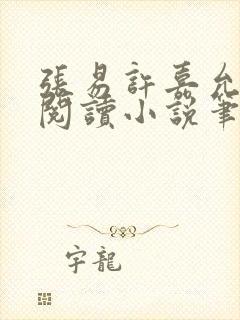 張易許嘉允
閱讀小說筆
字龍